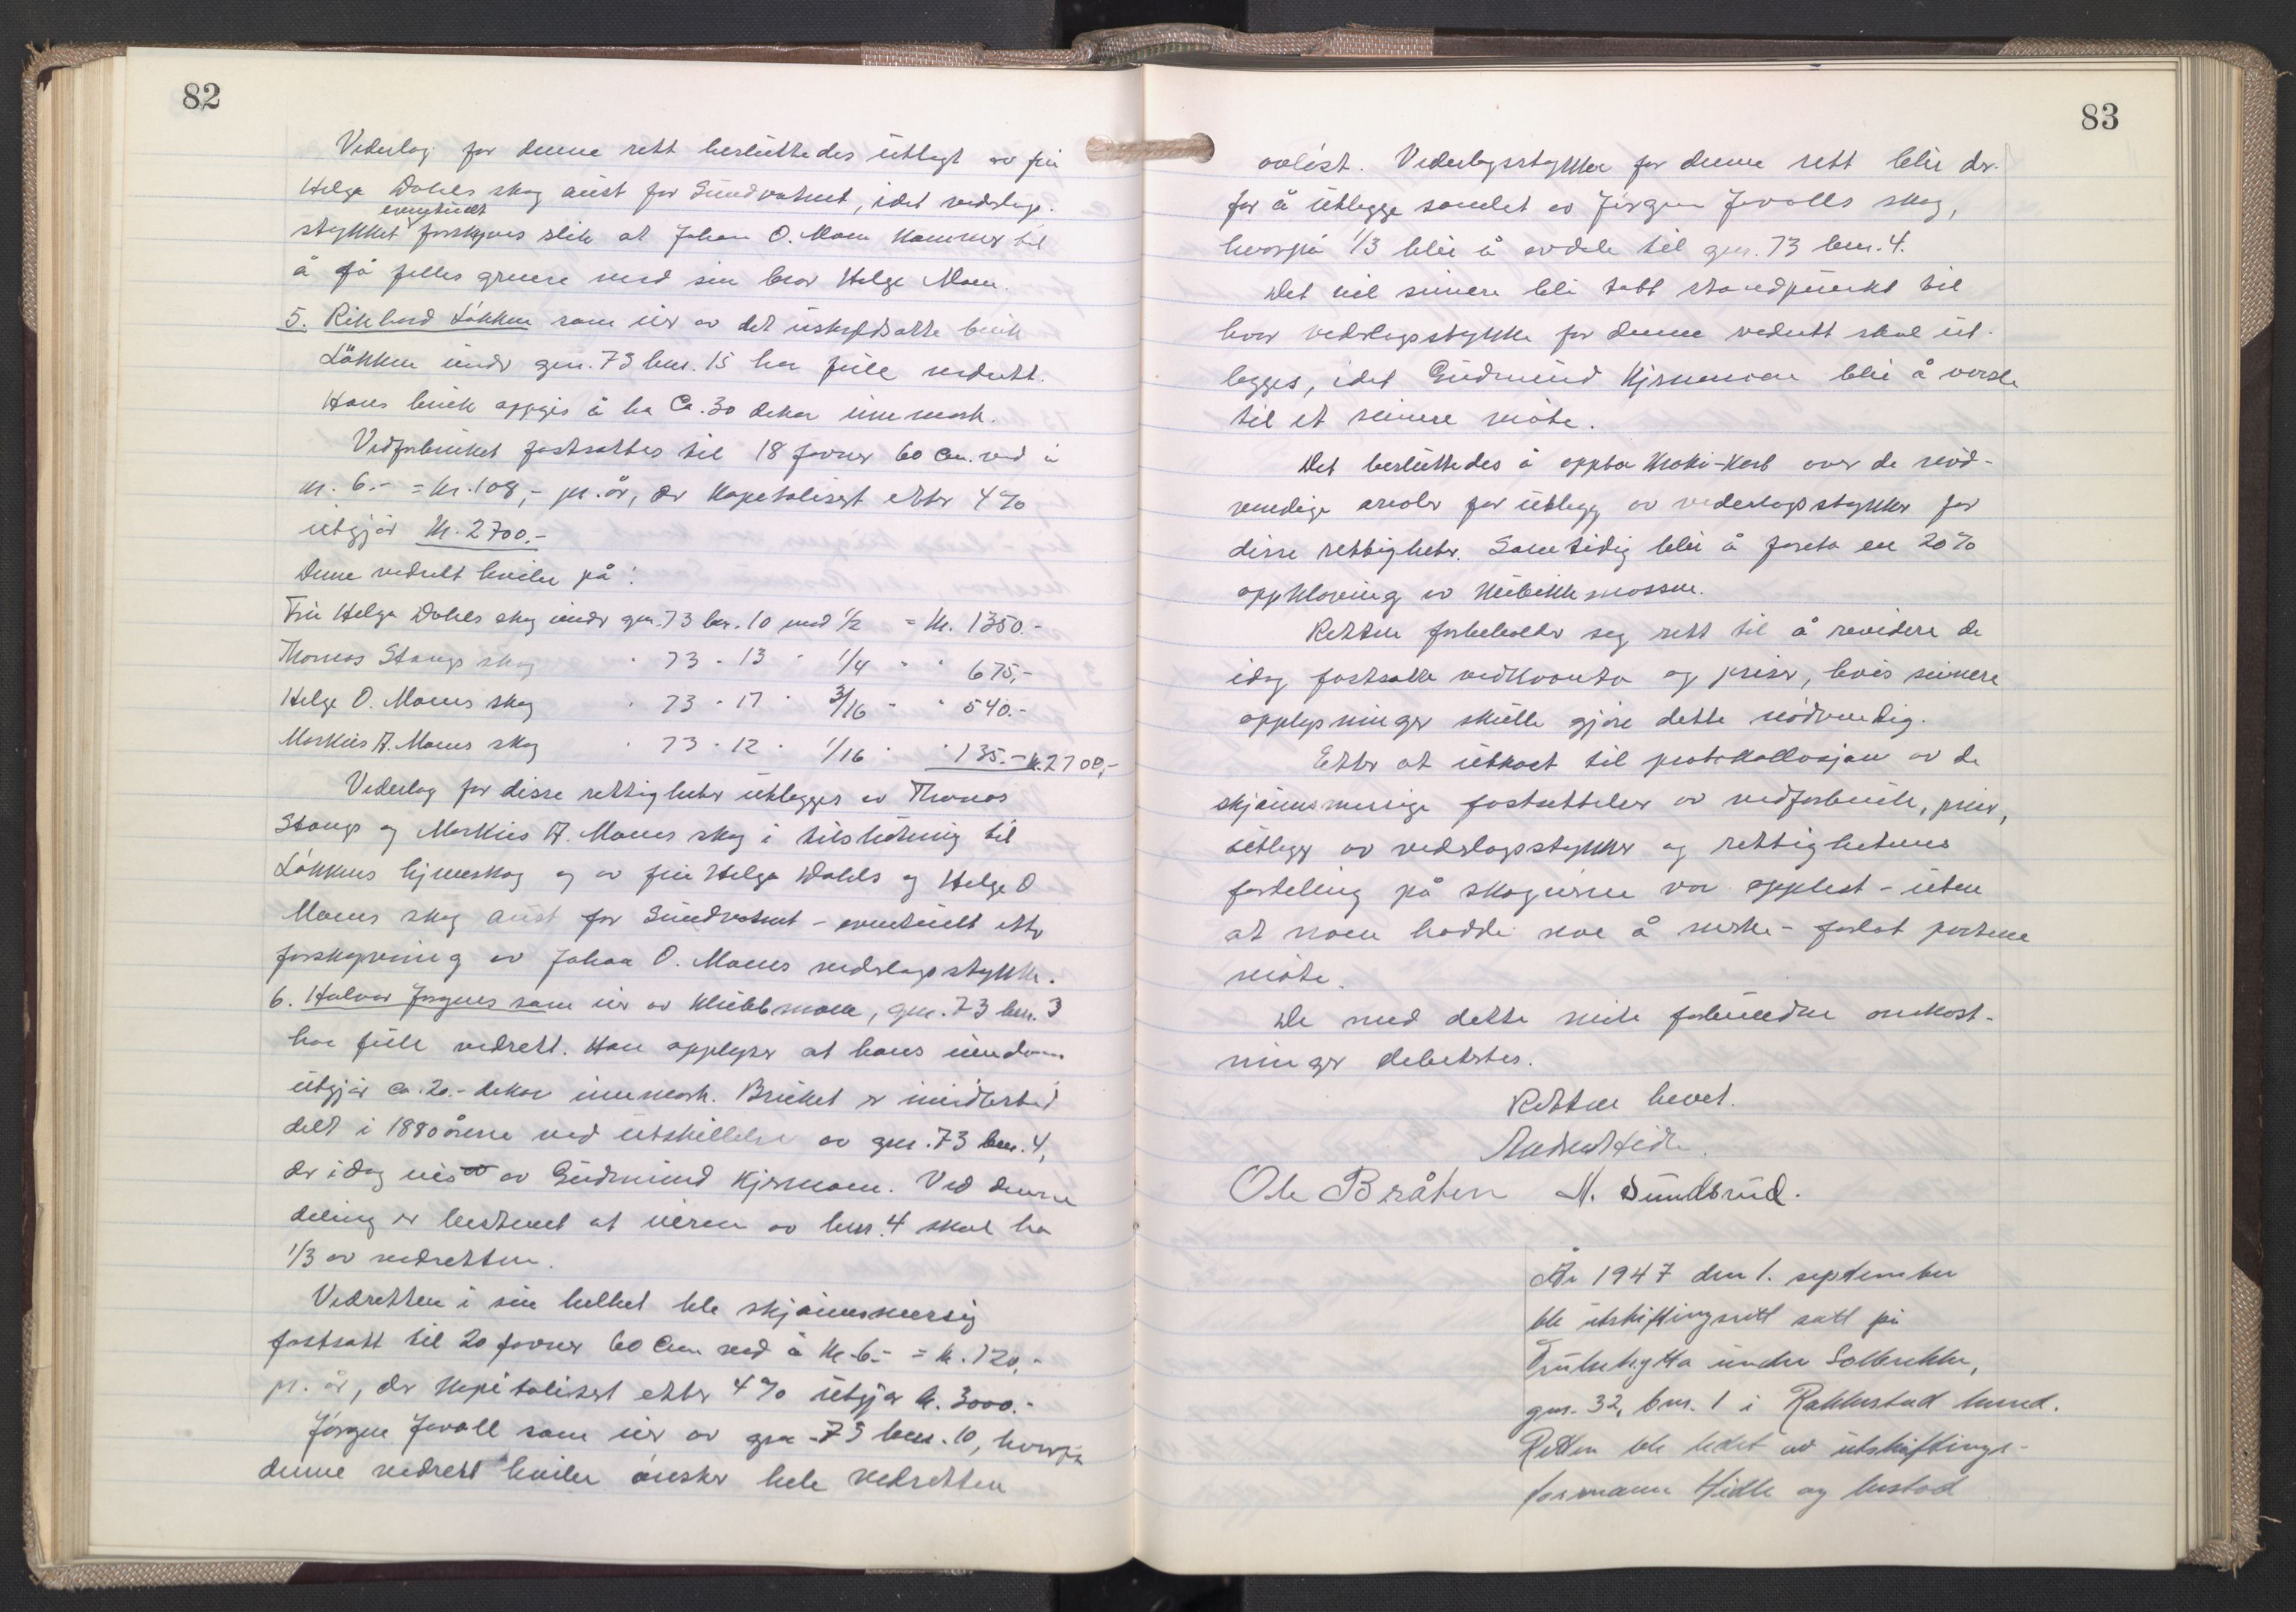 82
Vederlag for denne rett besluttedes utlagt av fru
Helga Dahls skog aust for Sundvatnet, idet vedslags-
eventuelt
stykket forskyves slik at Johan O. Moen kommer til
å få felles grense med sin bror Helge Moen.
5. Rikhard Løkken som eier av det uskyldsatte bruk
Løkken under gnr. 73 bnr. 15 har full vedrett.
Hans bruk oppgis å ha ca. 30 dekar innmark.
Vedforbruket fastsattes til 18 favner 60 cm. ved à
kr. 6.- = kr. 108,- pr. år, der kapitalisert etter 4%
utgjør kr. 2700.-
Denne vedrett hviler på:
Fru Helga Dahls skog under gnr. 73 bnr. 10 med 1/2 = kr. 1350.-
Thomas Stangs skog " 73 " 13 " 1/4 " " 675,-
Helge O. Moens skog " 73 " 17 " 3/16 " " 540.-
Markus A. Moens skog " 73 " 12 " 1/16 " " 135.- kr. 2700,-
Vederlag for disse rettigheter utlegges av Thomas
Stangs og Markus A. Moens skog i tilslutning til
Løkkens hjemskog og av fru Helga Dahls og Helge O
Moens skog aust for Sundvatnet - eventuelt etter
forskyvning av Johan O. Moens vedslagsstykke.
6. Halvor Jørgens som eier av Klubbmoen, gnr. 73 bnr. 3
har full vedrett. Han opplyser at hans eiendom
utgjør ca. 20.- dekar innmark. Bruket er imidlertid
delt i 1880 årene ved utskillelse av gnr. 73 bnr. 4,
der idag eies av Gudmund Kjernmoen. Ved denne
deling er bestemt at eieren av bnr. 4 skal ha
1/3 av vedretten.
Vedretten i sin helhet ble skjønnsmessig
fastsatt til 20 favner 60 cm ved à kr. 6.- = kr. 120,-
pr. år, der kapitalisert etter 4% utgjør kr. 3000.-
Jørgen Jevall som eier av gnr. 73 bnr. 10, hvorpå
denne vedrett hviler ønsker hele vedretten
83
avløst. Vederlagsstykke for denne rett blir der-
for å utlegge samlet av Jørgen Jevalls skog,
hvorpå 1/3 blir å avdele til gnr. 73 bnr. 4.
Det vil seinere bli tatt standpunkt til
hvor vedslagsstykke for denne vedrett skal ut-
legges, idet Gudmund Kjernmoen blir å varsle
til et seinere møte.
Det besluttedes å oppta kroki-kart over de nød-
vendige arealer for utlegg av vederlagsstykker for
disse rettigheter. Samtidig blir å foreta en 20%
oppklaving av kubikkmassen.
Retten forbeholder seg rett til å revidere de
idag fastsatte vedkvanta og priser, hvis seinere
opplysninger skulle gjøre dette nødvendig.
Etter at utkast til protokollasjon av de
skjønnsmessige fastsettelser av vedforbruk, priser,
utlegg av vedslagsstykker og rettighetenes
fordeling på skogeierne var opplest - uten
at noen hadde noe å merke - forlot partene
møte.
De med dette møte forbundne omkost-
ninger debetertes.
Retten hevet.
Andreas Hidle.
Ole Bråten M. Sundbrud.
År 1947 den 1. september
ble utskiftingsrett satt på
Trulsehytta under Solbrekke,
gnr. 32, bnr. 1 i Rakkestad herred.
Retten ble ledet av utskiftings-
formann Hidle og bestod